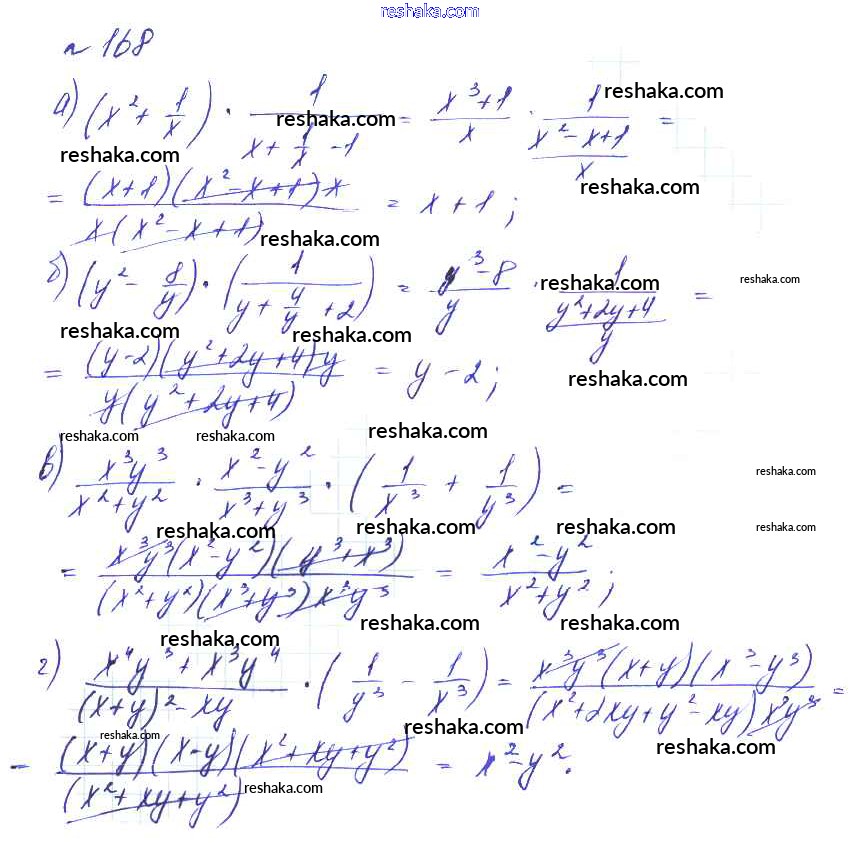 reshaka.com
№ 168
а) (x² + 1/x) · 1/(x + 1/x - 1) = (x³+1)/x · 1/((x²-x+1)/x) =
reshaka.com reshaka.com reshaka.com reshaka.com
= (x+1)(x²-x+1)x / x(x²-x+1) = x+1;
reshaka.com
б) (y² - 8/y) · (1/(y + 4/y + 2)) = (y³-8)/y · 1/((y²+2y+4)/y) =
reshaka.com reshaka.com reshaka.com
= (y-2)(y²+2y+4)y / y(y²+2y+4) = y-2;
reshaka.com
reshaka.com reshaka.com reshaka.com
в) x³y³/(x²+y²) · (x²-y²)/(x³+y³) · (1/x³ + 1/y³) =
reshaka.com
reshaka.com reshaka.com reshaka.com reshaka.com
= x³y³(x²-y²)(y³+x³) / (x²+y²)(x³+y³)x³y³ = (x²-y²)/(x²+y²);
reshaka.com reshaka.com reshaka.com
г) (x⁴y³+x³y⁴)/((x+y)²-xy) · (1/y³ - 1/x³) = x³y³(x+y)(x³-y³) / (x²+2xy+y²-xy)x³y³ =
reshaka.com reshaka.com reshaka.com
= (x+y)(x-y)(x²+xy+y²) / (x²+xy+y²) = x²-y².
reshaka.com